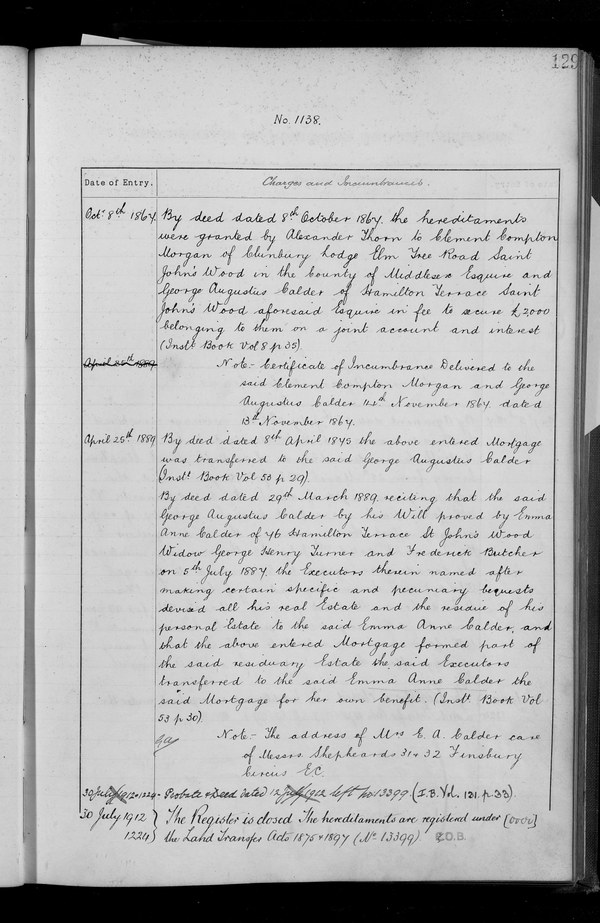 129
No. 1138.
Date of Entry.
Charges and Incumbrances.
Octr 8th 1864. By deed dated 8th October 1864 the hereditaments
were granted by Alexander Thorn to Clement Compton
Morgan of Clunbury Lodge Elm Tree Road Saint
John's Wood in the County of Middlesex Esquire and
George Augustus Calder of Hamilton Terrace Saint
John's Wood aforesaid Esquire in fee to secure £2,000
belonging to them on a joint account and interest
(Instt. Book Vol 8 p 35).
April 25th 1889
Note:- Certificate of Incumbrance Delivered to the
said Clement Compton Morgan and George
Augustus Calder 14th November 1864 dated
13th November 1864.
April 25th 1889 By deed dated 8th April 1875 the above entered Mortgage
was transferred to the said George Augustus Calder
(Instt. Book Vol 53 p 29).
By deed dated 29th March 1889 reciting that the said
George Augustus Calder by his Will proved by Emma
Anne Calder of 46 Hamilton Terrace St John's Wood
Widow George Henry Turner and Frederick Butcher
on 5th July 1887 the Executors therein named after
making certain specific and pecuniary bequests
devised all his real Estate and the residue of his
personal Estate to the said Emma Anne Calder, and
that the above entered Mortgage formed part of
the said residuary Estate the said Executors
transferred to the said Emma Anne Calder the
said Mortgage for her own benefit. (Instt. Book Vol
53 p 30)
Note:- The address of Mrs E. A. Calder care
of Messrs Shepheards 31 & 32 Finsbury
Circus E.C.
30 July 1912 1224 - Probate & Deed dated 12 July 1912 left no 13399 (I.B. Vol. 131. p 33)
30 July 1912 } The Register is closed The hereditaments are registered under
1224 } the Land Transfer Acts 1875 & 1897 (No 13399) C.O.B.